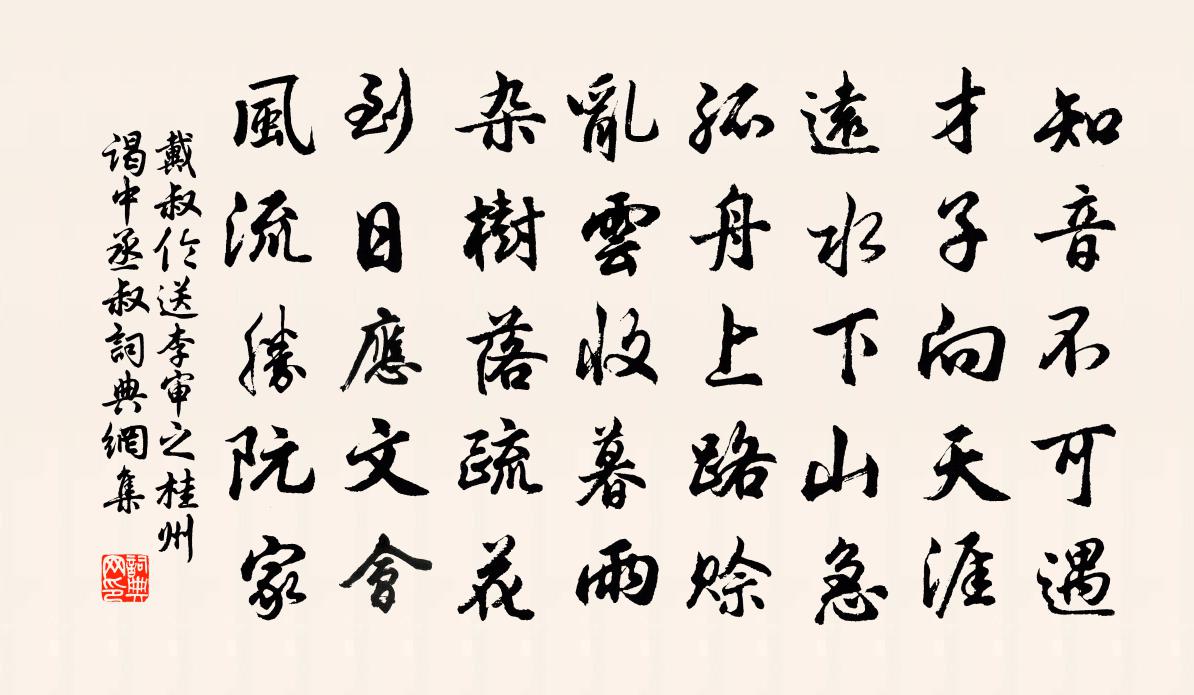 知音不可遇
才子向天涯
遠水下山急
孤舟上路賒
亂雲收暮雨
杂樹落疏花
到日應文會
風流勝阮家
戴叔伦送李审之桂州
谒中丞叔詞典網集
詞典网印